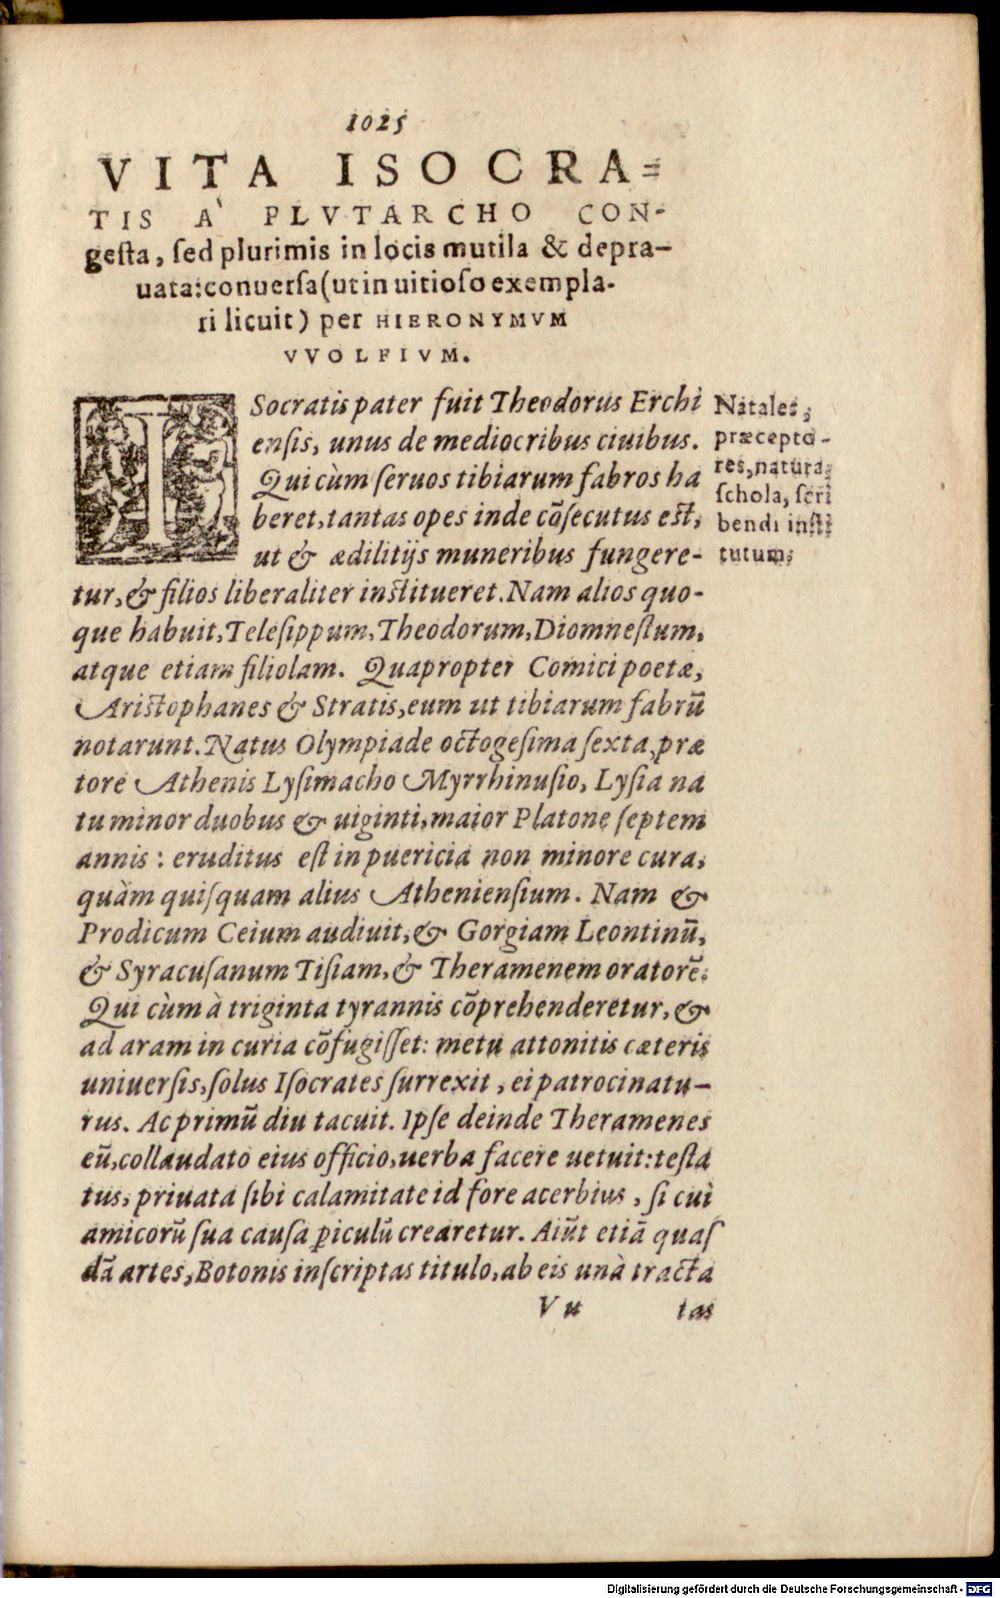 1025
VITA ISOCRA=
TIS A` PLVTARCHO CON-
gesta, sed plurimis in locis mutila & depra-
uata: conuersa (ut in uitioso exempla-
ri licuit) per HIERONYMVM
VVOLFIVM.
ISocratis pater fuit Theodorus Erchi
ensis, unus de mediocribus ciuibus.
Qui cùm seruos tibiarum fabros ha
beret, tantas opes inde cõsecutus est,
ut & ædilitijs muneribus fungere-
tur, & filios liberaliter institueret. Nam alios quo-
que habuit, Telesippum, Theodorum, Diomnestum,
atque etiam filiolam. Quapropter Comici poetæ,
Aristophanes & Stratis, eum ut tibiarum fabrũ
notarunt. Natus Olympiade octogesima sexta, præ
tore Athenis Lysimacho Myrrhinusio, Lysia na
tu minor duobus & uiginti, maior Platone septem
annis: eruditus est in puericia non minore cura,
quàm quisquam alius Atheniensium. Nam &
Prodicum Ceium audiuit, & Gorgiam Leontinũ,
& Syracusanum Tisiam, & Theramenem oratorẽ.
Qui cùm à triginta tyrannis cõprehenderetur, &
ad aram in curia cõfugisset: metu attonitis cæteris
uniuersis, solus Isocrates surrexit, ei patrocinatu-
rus. Ac primũ diu tacuit. Ipse deinde Theramenes
eũ, collaudato eius officio, uerba facere uetuit: testa
tus, priuata sibi calamitate id fore acerbius, si cui
amicorũ sua causa ꝑiculũ crearetur. Aiũt etiã quas
dã artes, Botonis inscriptas titulo, ab eis unà tracta
Vu tas
Natales,
præcepto-
res, natura,
schola, scri
bendi insti
tutum;
Digitalisierung gefördert durch die Deutsche Forschungsgemeinschaft - DFG